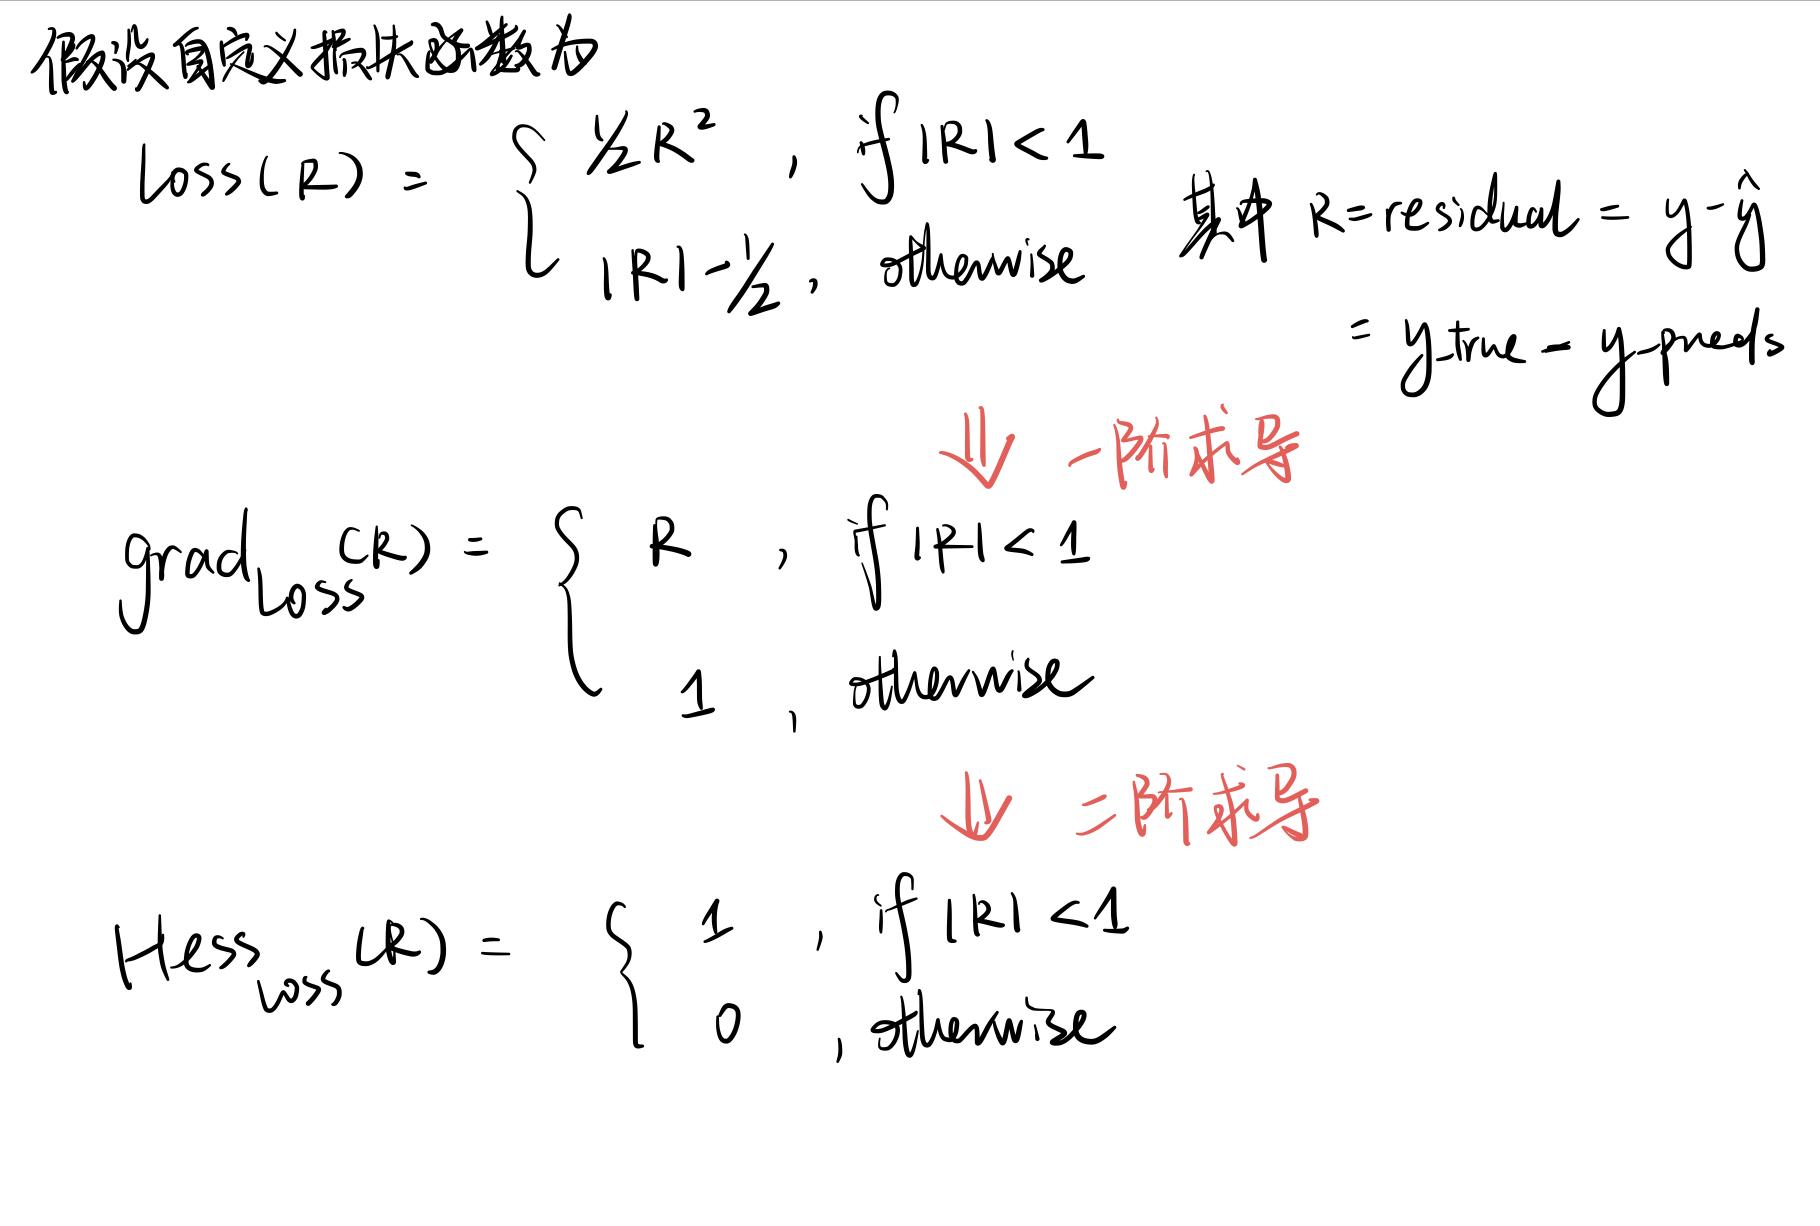 假设自定义损失函数为
Loss(R) = { ½R² , if |R| < 1
|R| - ½ , otherwise
其中 R = residual = y - ŷ
= y_true - y_preds
⇓ 一阶求导
grad_Loss (R) = { R , if |R| < 1
1 , otherwise
⇓ 二阶求导
Hess_Loss (R) = { 1 , if |R| < 1
0 , otherwise